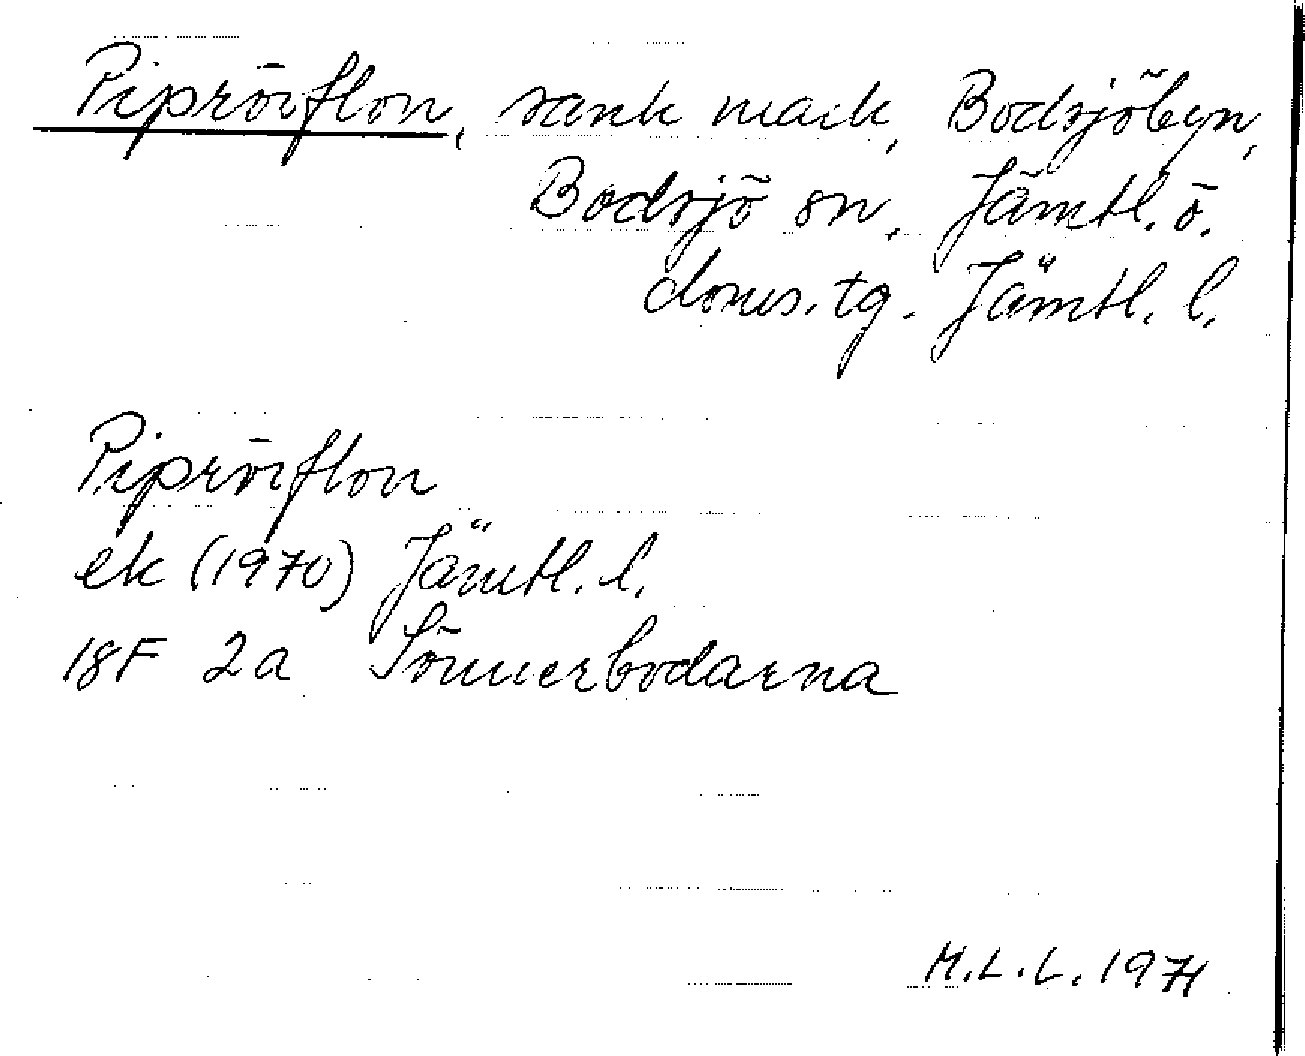 Pipröiflon, sank mark, Bodsjöbyn,
Bodsjö sn, Jämtl. ö.
doms.tg. Jämtl. l.
Pipröiflon
ek (1970) Jämtl. l.
18F 2a Sönnerbodarna
M.L.L. 1971